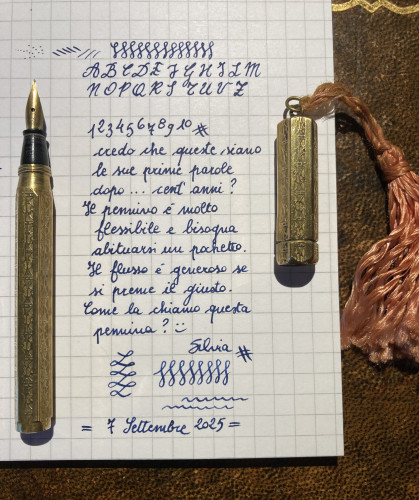 A B C D E F G H I L M
N O P Q R S T U V Z
1 2 3 4 5 6 7 8 9 10 #
credo che queste siano
le sue prime parole
dopo ... cent'anni?
Il pennino è molto
flessibile e bisogna
abituarsi un pochetto.
Il flusso è generoso se
si preme il giusto.
Come la chiamo questa
pennina? :)
Silvia #
= 7 Settembre 2025 =